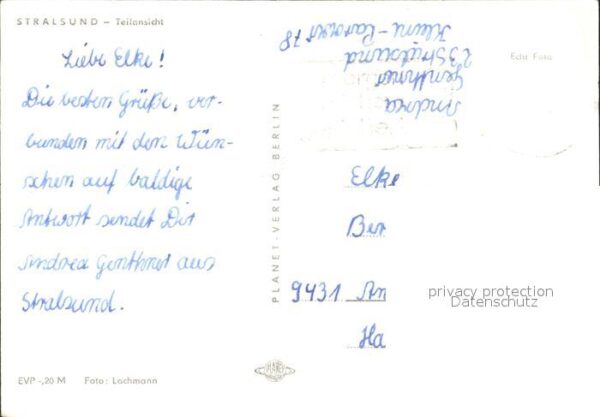 STRALSUND – Teilansicht
Liebe Elke!
Die besten Grüße, ver-
bunden mit den Wün-
schen auf baldige
Antwort sendet Dir
Andrea Genthner aus
Stralsund.
EVP -,20 M Foto: Lachmann
PLANET-VERLAG BERLIN
PLANET
Andrea
Genthner
23 Stralsund
Echt Foto
Elke
Ber
9431 An
Ha
privacy protection
Datenschutz